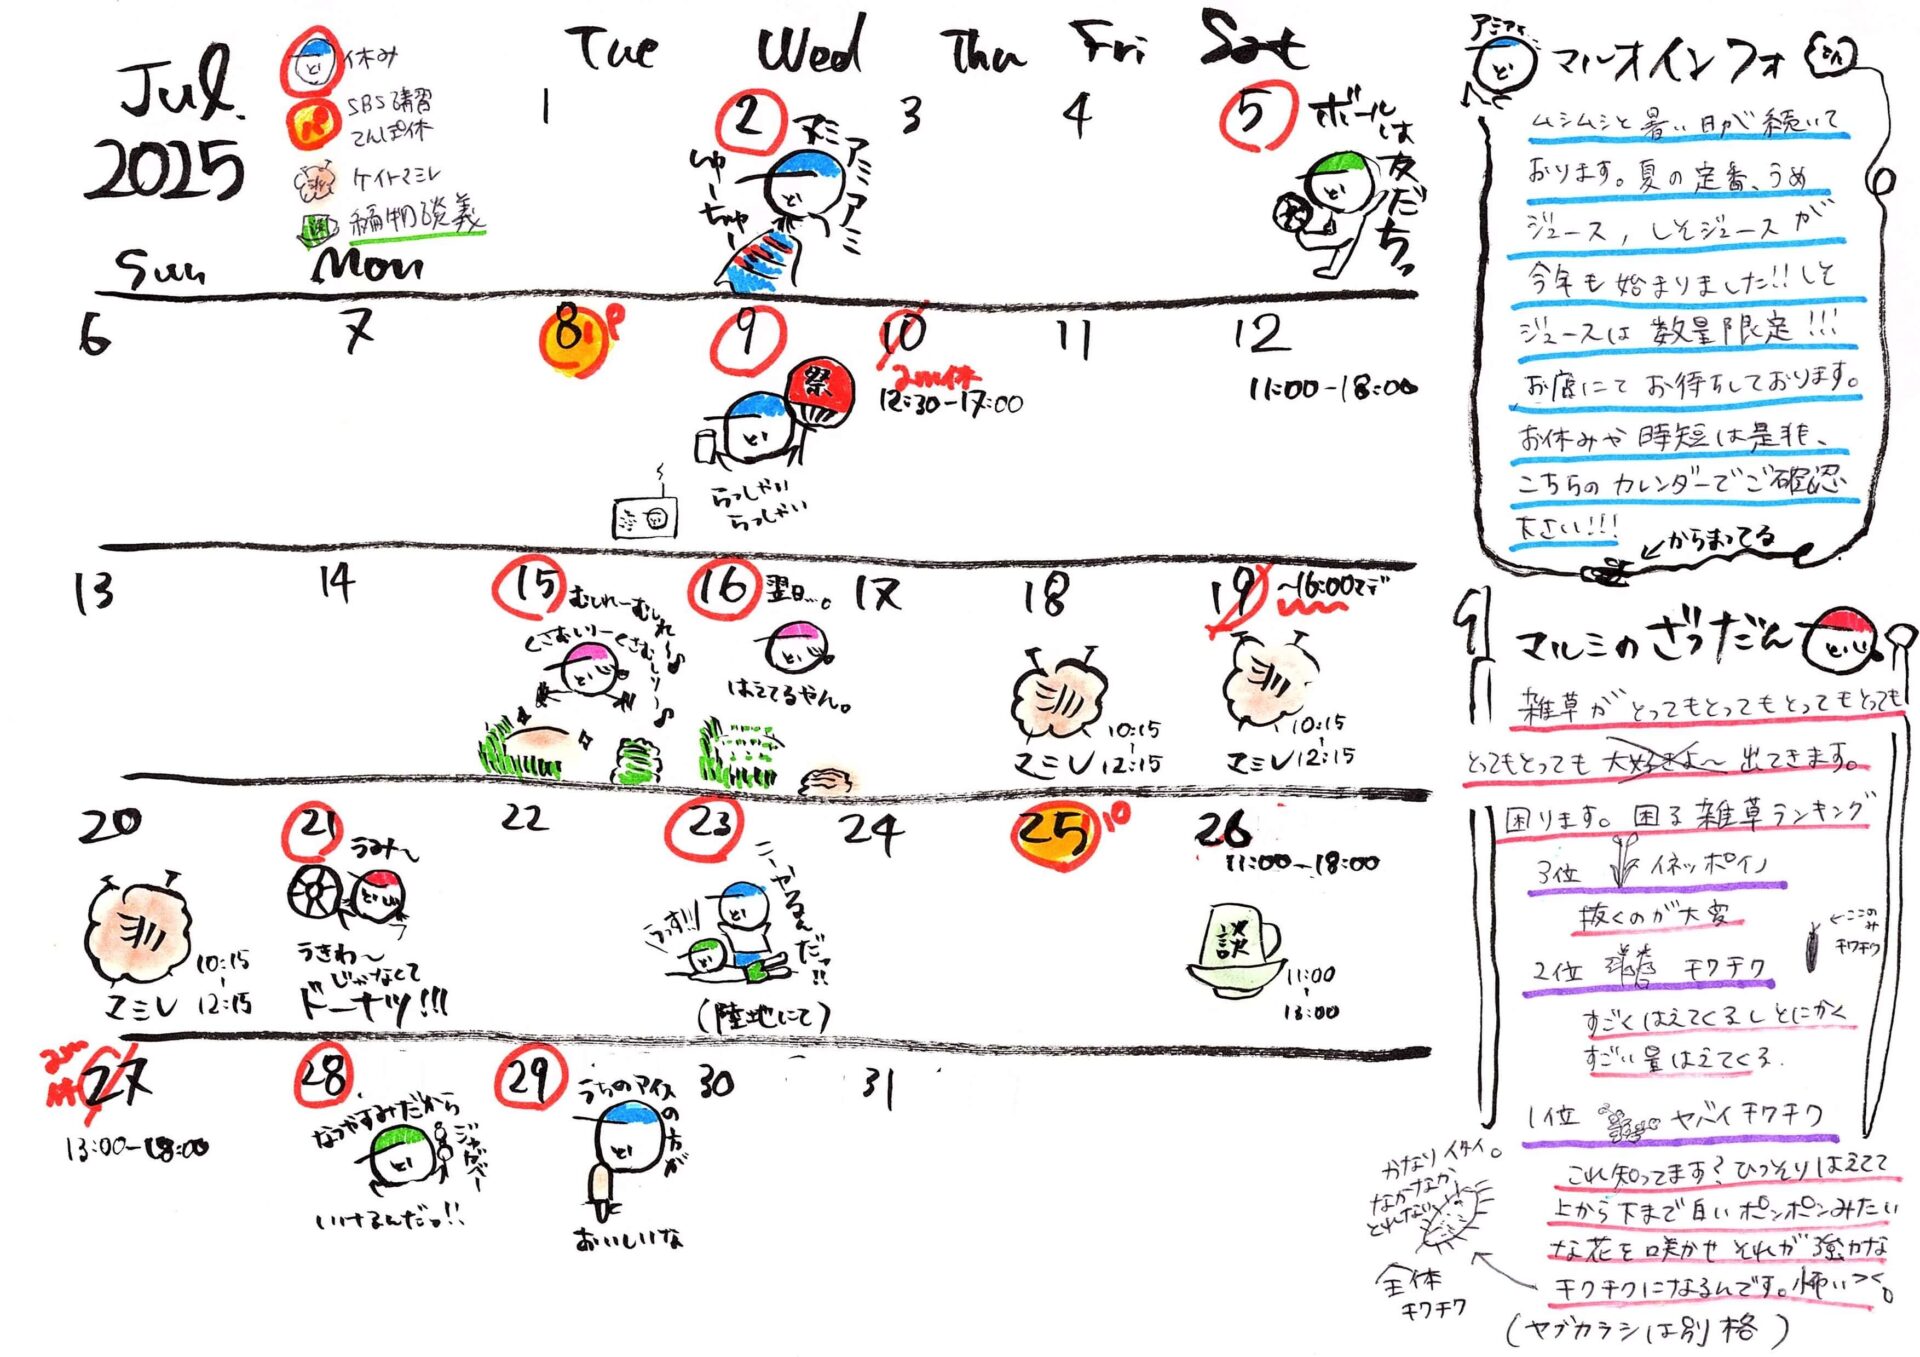 Jul.
2025
休み
SBS講習
てんぽ休
ケイトマミレ
編物談義
Sun Mon Tue Wed Thu Fri Sat
1
2
アミアミアミアミ
3
4
5
ボールは
友だちっ
6
7
8
9
祭
らっしゃい
らっしゃい
10
12:30-17:00
11
12
11:00-18:00
13
14
15
むしれーむしれー♪
くさむしりーくさむしりー♪
16
翌日…。
はえてるやん。
17
18
10:15
12:15
マミレ
19
~16:00マデ
10:15
12:15
マミレ
20
10:15
12:15
マミレ
21
うみ〜
うきわ〜
じゃなくて
ドーナツ!!!
22
23
うっす!!!
(陸地にて)
24
25
26
11:00-18:00
談
11:00
13:00
27
13:00-18:00
28
なつやすみだから
いけるんだっ!!
29
うちのアイスの方が
おいしいな
30
31
マルオインフォ
ムシムシと暑い日が続いて
おります。夏の定番、うめ
ジュース, しそジュースが
今年も始まりました!!しそ
ジュースは数量限定!!!
お店にてお待ちしております。
お休みや時短は是非、
こちらのカレンダーでご確認
下さい!!!
←からまってる
マルミのざつだん
雑草がとってもとってもとってもとっても
とってもとっても大好きよ〜出てきます。
困ります。困る雑草ランキング
3位 イネッポイノ
抜くのが大変
2位 チクチク
←ここのみ
チクチク
すごくはえてくるしとにかく
すごい量はえてくる.
1位 ヤバイチクチク
これ知ってます?ひっそりはえてて
上から下まで白いポンポンみたい
な花を咲かせそれが強力な
チクチクになるんです。怖いっ。
(ヤブカラシは別格)
かなりイタイ。
なかなか
とれない
全体
チクチク